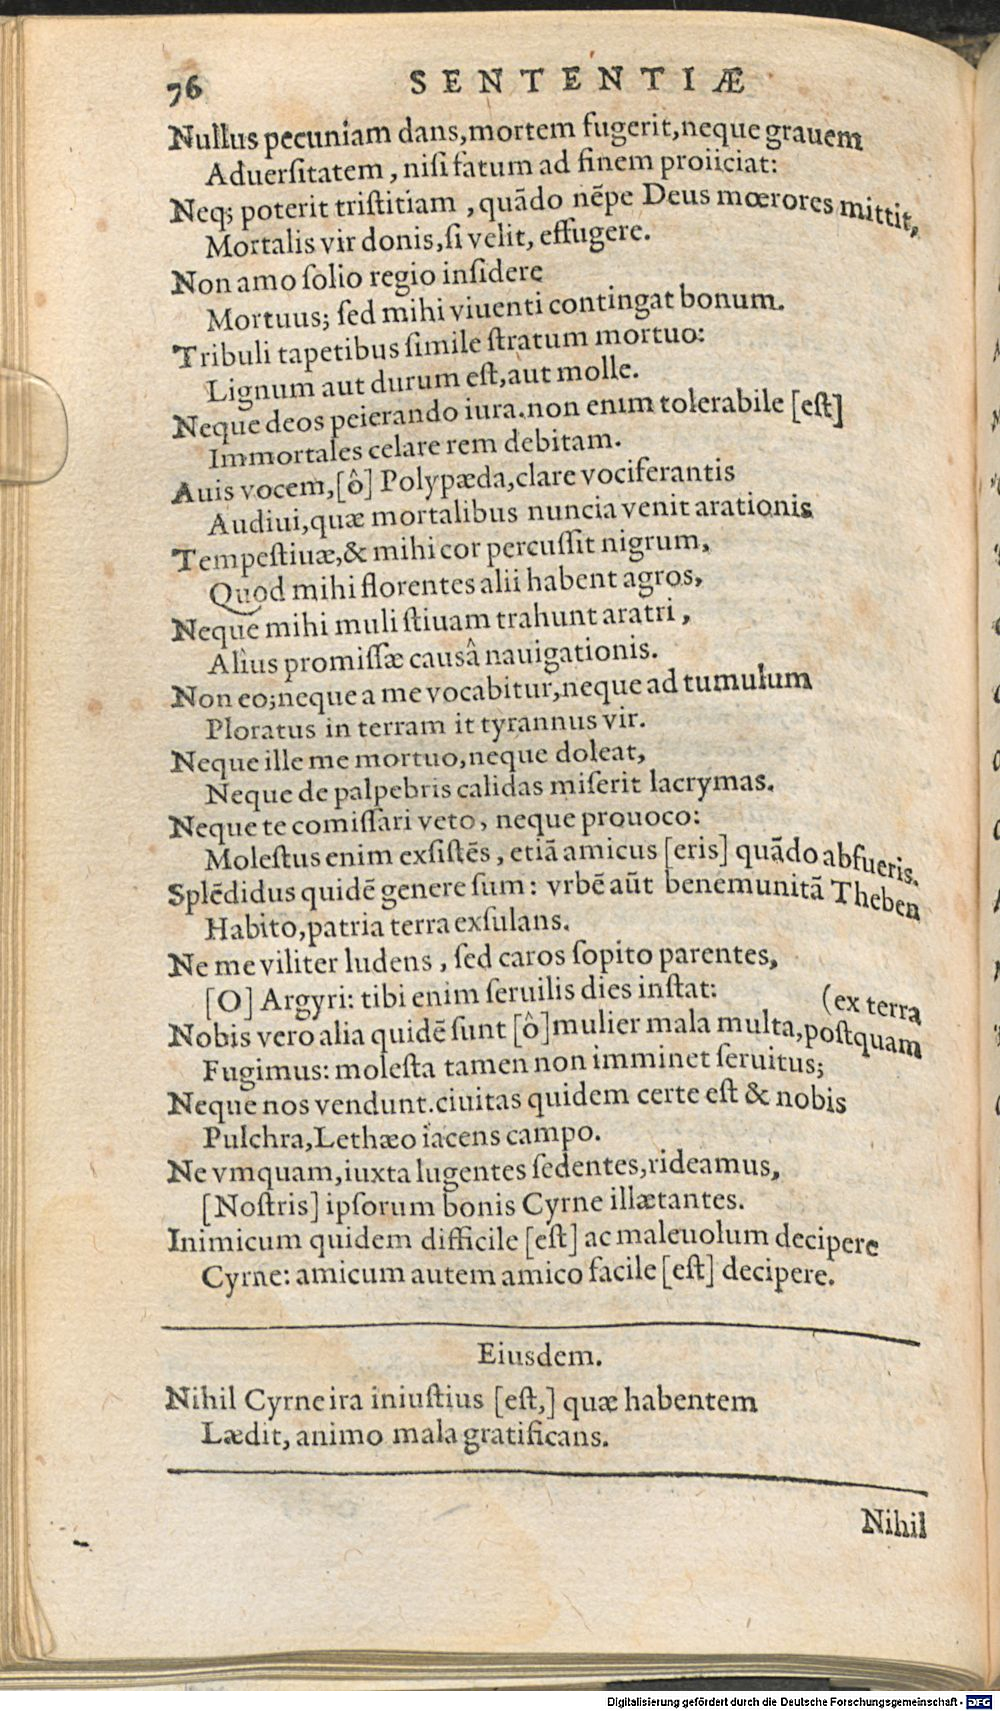 76 SENTENTIÆ
Nullus pecuniam dans, mortem fugerit, neque grauem
Aduerſitatem, niſi fatum ad finem proiiciat:
Neq; poterit triſtitiam, quādo nēpe Deus mœrores mittit,
Mortalis vir donis, ſi velit, effugere.
Non amo ſolio regio inſidere
Mortuus; ſed mihi viuenti contingat bonum.
Tribuli tapetibus ſimile ſtratum mortuo:
Lignum aut durum eſt, aut molle.
Neque deos peierando iura. non enim tolerabile [eſt]
Immortales celare rem debitam.
Auis vocem, [ô] Polypæda, clare vociferantis
Audiui, quæ mortalibus nuncia venit arationis
Tempeſtiuæ, & mihi cor percuſſit nigrum,
Quod mihi florentes alii habent agros,
Neque mihi muli ſtiuam trahunt aratri,
Alius promiſſæ causâ nauigationis.
Non eo; neque a me vocabitur, neque ad tumulum
Ploratus in terram it tyrannus vir.
Neque ille me mortuo, neque doleat,
Neque de palpebris calidas miſerit lacrymas.
Neque te comiſſari veto, neque prouoco:
Moleſtus enim exſiſtēs, etiā amicus [eris] quādo abfueris.
Splēdidus quidē genere ſum: vrbē aūt benemunitā Theben
Habito, patria terra exſulans.
Ne me viliter ludens, ſed caros ſopito parentes,
[O] Argyri: tibi enim ſeruilis dies inſtat:
(ex terra
Nobis vero alia quidē ſunt [ô] mulier mala multa, poſtquam
Fugimus: moleſta tamen non imminet ſeruitus;
Neque nos vendunt. ciuitas quidem certe eſt & nobis
Pulchra, Lethæo iacens campo.
Ne vmquam, iuxta lugentes ſedentes, rideamus,
[Noſtris] ipſorum bonis Cyrne illætantes.
Inimicum quidem difficile [eſt] ac maleuolum decipere
Cyrne: amicum autem amico facile [eſt] decipere.
Eiusdem.
Nihil Cyrne ira iniuſtius [eſt,] quæ habentem
Lædit, animo mala gratificans.
Nihil
Digitalisierung gefördert durch die Deutsche Forschungsgemeinschaft - DFG